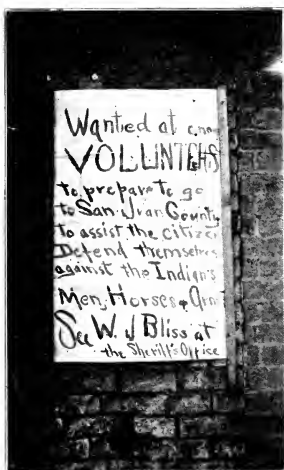 Wanted at once
VOLUNTEERS
to prepare to go
to San Juan County
to assist the citizen
Defend themselves
against the Indians
Men, Horses & Arms
See W. J Bliss at
the Sheriff's Office